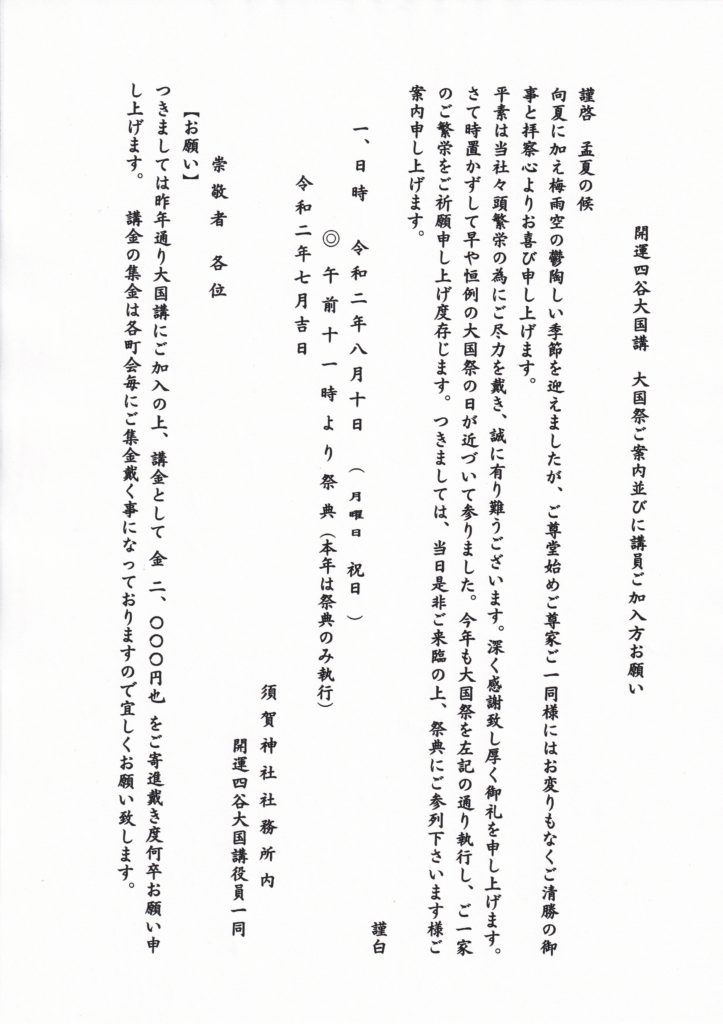 開運四谷大国講　大国祭ご案内並びに講員ご加入方お願い
謹啓　孟夏の候
向夏に加え梅雨空の鬱陶しい季節を迎えましたが、ご尊堂始めご尊家ご一同様にはお変りもなくご清勝の御
事と拝察心よりお喜び申し上げます。
平素は当社々頭繁栄の為にご尽力を戴き、誠に有り難うございます。深く感謝致し厚く御礼を申し上げます。
さて時置かずして早や恒例の大国祭の日が近づいて参りました。今年も大国祭を左記の通り執行し、ご一家
のご繁栄をご祈願申し上げ度存じます。つきましては、当日是非ご来臨の上、祭典にご参列下さいます様ご
案内申し上げます。
謹白
一、日時　令和二年八月十日　（月曜日　祝日　）
◎　午前十一時より祭典（本年は祭典のみ執行）
令和二年七月吉日
須賀神社社務所内
開運四谷大国講役員一同
崇敬者　各位
【お願い】
つきましては昨年通り大国講にご加入の上、講金として　金　二、〇〇〇円也　をご寄進戴き度何卒お願い申
し上げます。　講金の集金は各町会毎にご集金戴く事になっておりますので宜しくお願い致します。